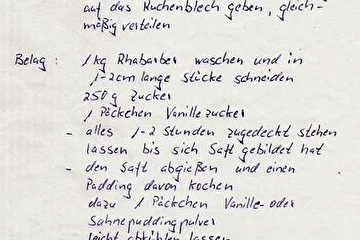 auf das Kuchenblech geben, gleich-
mäßig verteilen
Belag: 1 kg Rhabarber waschen und in
1-2cm lange Stücke schneiden
250 g Zucker
1 Päckchen Vanillezucker
- alles 1-2 Stunden zugedeckt stehen
lassen bis sich Saft gebildet hat
- den Saft abgießen und einen
Pudding davon kochen
dazu 1 Päckchen Vanille- oder
Sahnepuddingpulver
leicht abkühlen lassen